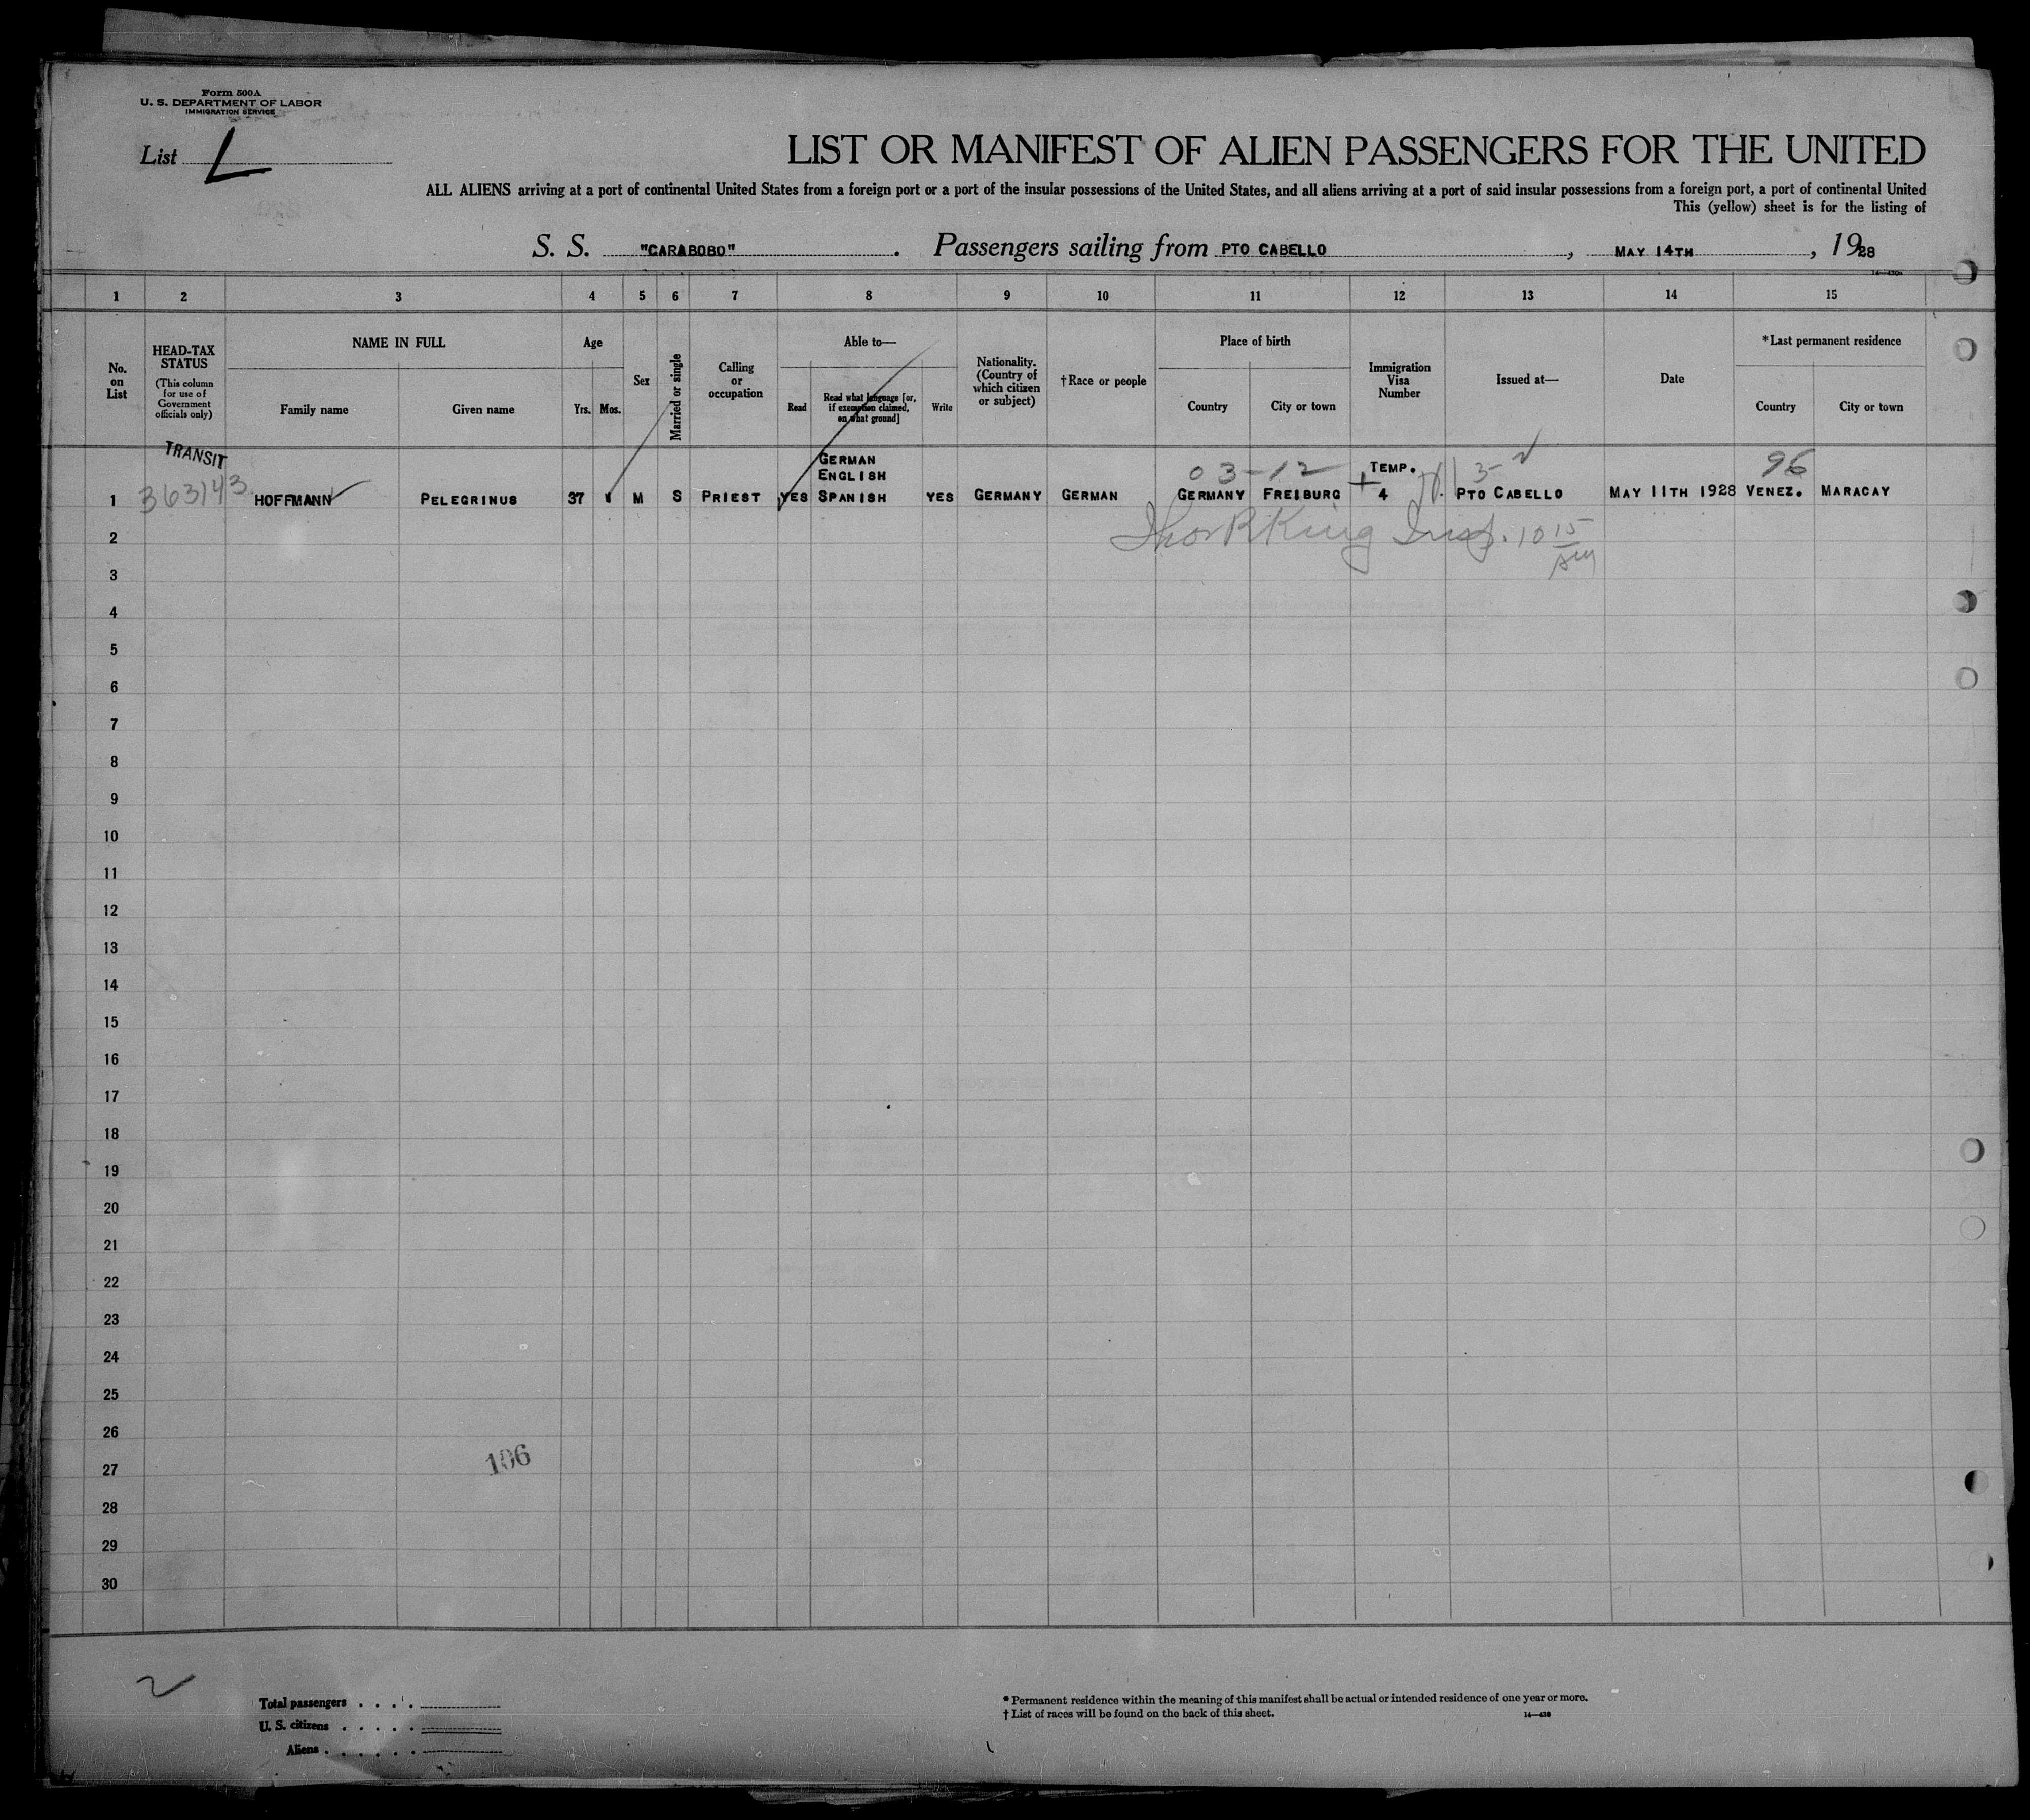 Form 500A
U. S. DEPARTMENT OF LABOR
IMMIGRATION SERVICE
List L
LIST OR MANIFEST OF ALIEN PASSENGERS FOR THE UNITED
ALL ALIENS arriving at a port of continental United States from a foreign port or a port of the insular possessions of the United States, and all aliens arriving at a port of said insular possessions from a foreign port, a port of continental United
This (yellow) sheet is for the listing of
S. S. "CARABOBO". Passengers sailing from PTO CABELLO, MAY 14TH, 1928
1 2 3 4 5 6 7 8 9 10 11 12 13 14 15
No. on List
HEAD-TAX STATUS
(This column for use of Government officials only)
NAME IN FULL
Family name Given name
Age
Yrs. Mos.
Sex
Married or single
Calling or occupation
Able to—
Read
Read what language [or, if exemption claimed, on what ground]
Write
Nationality. (Country of which citizen or subject)
†Race or people
Place of birth
Country City or town
Immigration Visa Number
Issued at—
Date
*Last permanent residence
Country City or town
TRANSIT
GERMAN
ENGLISH
03-12 TEMP. 96
1 363143 HOFFMANN PELEGRINUS 37 M S PRIEST YES SPANISH YES GERMANY GERMAN GERMANY FREIBURG 4 PTO CABELLO MAY 11TH 1928 VENEZ. MARACAY
2 Thos R King Insp. 10 15 AM
3
4
5
6
7
8
9
10
11
12
13
14
15
16
17
18
19
20
21
22
23
24
25
26
106
27
28
29
30
Total passengers
U. S. citizens
Aliens
* Permanent residence within the meaning of this manifest shall be actual or intended residence of one year or more.
† List of races will be found on the back of this sheet.